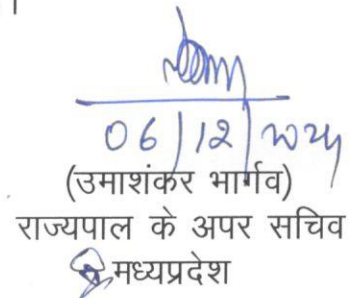 ।
06/12/2024
(उमाशंकर भार्गव)
राज्यपाल के अपर सचिव
मध्यप्रदेश